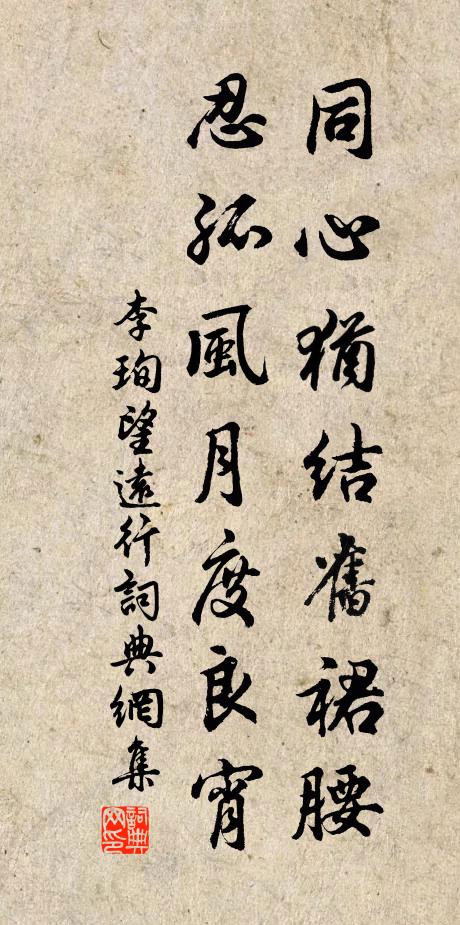 同心猶結舊裙腰
忍孤風月度良宵
李珣望遠行詞典網集
詞典
网印